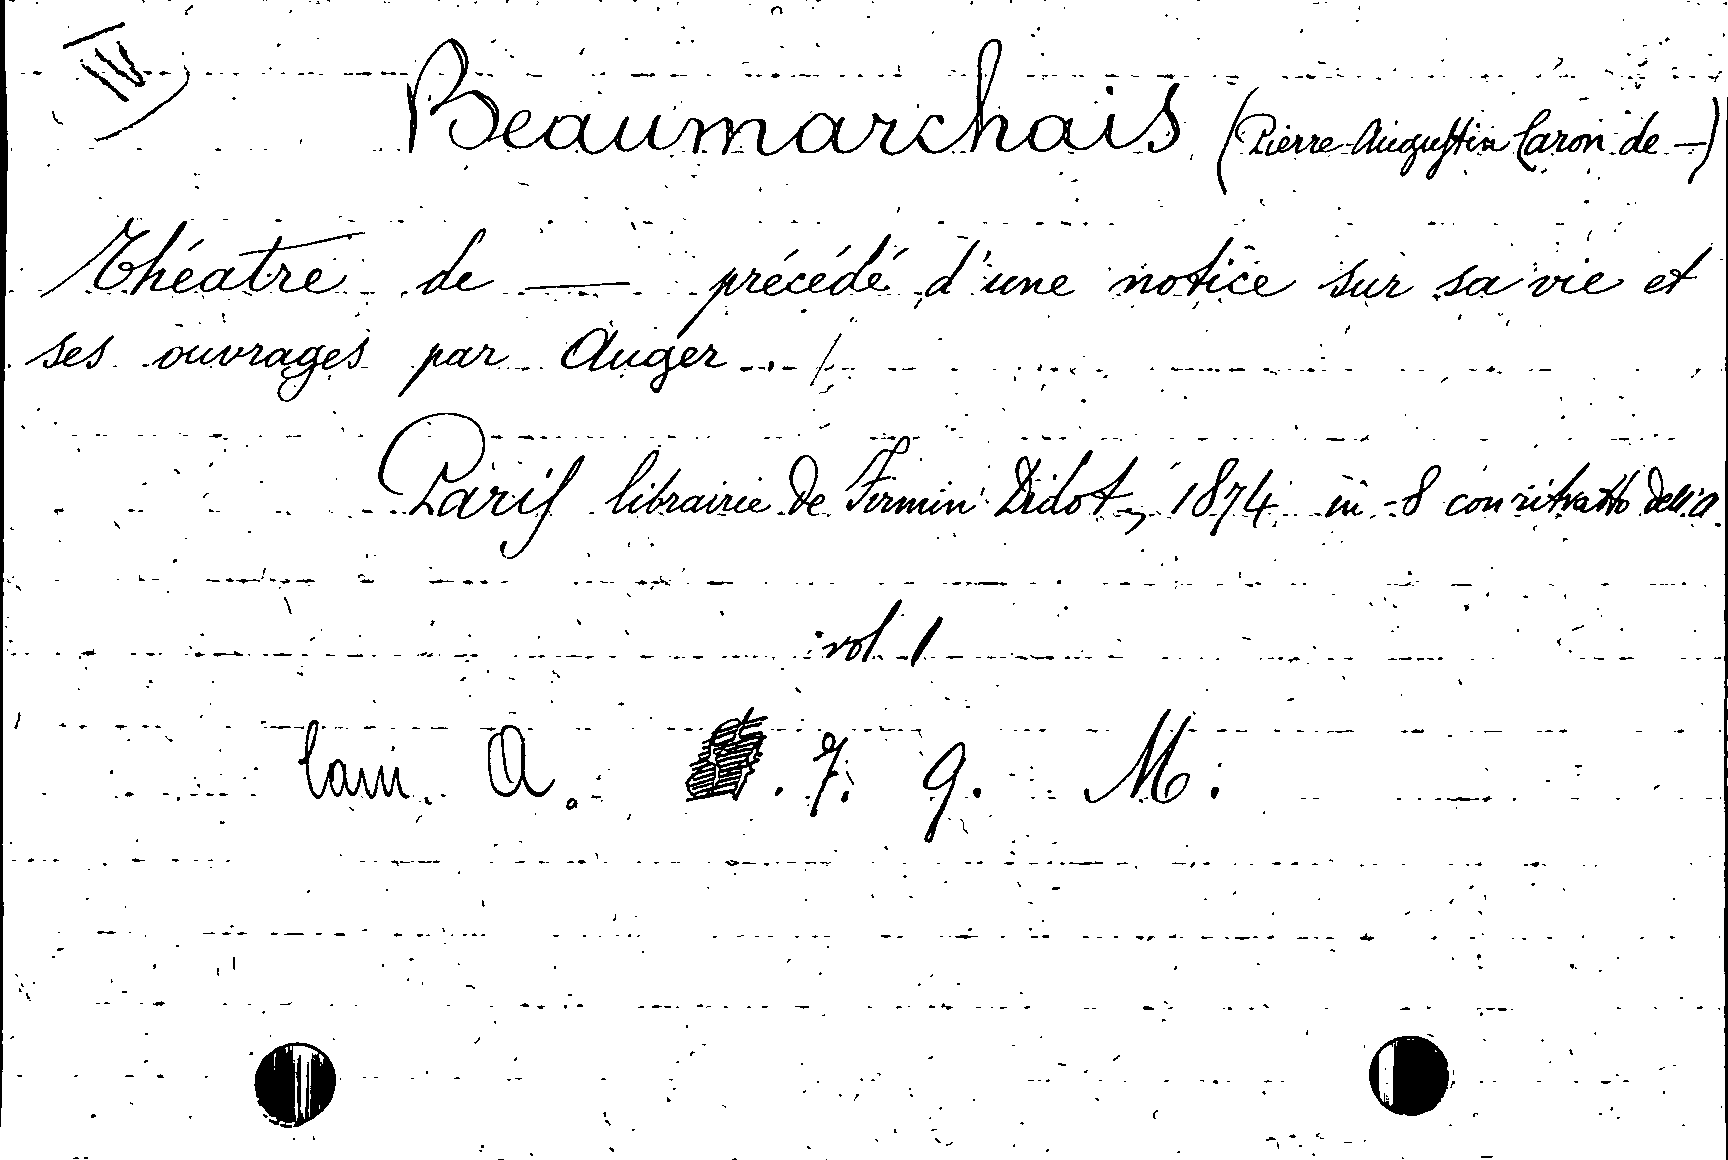 IV)
Beaumarchais (Pierre Augustin Caron de —)
Théatre de — précédé d'une notice sur sa vie et
ses ouvrages par Auger. /
Paris librairie de Firmin Didot, 1874 in-8 con ritratto dell'a.
vol. 1
Cam. A. . 7. 9. M.